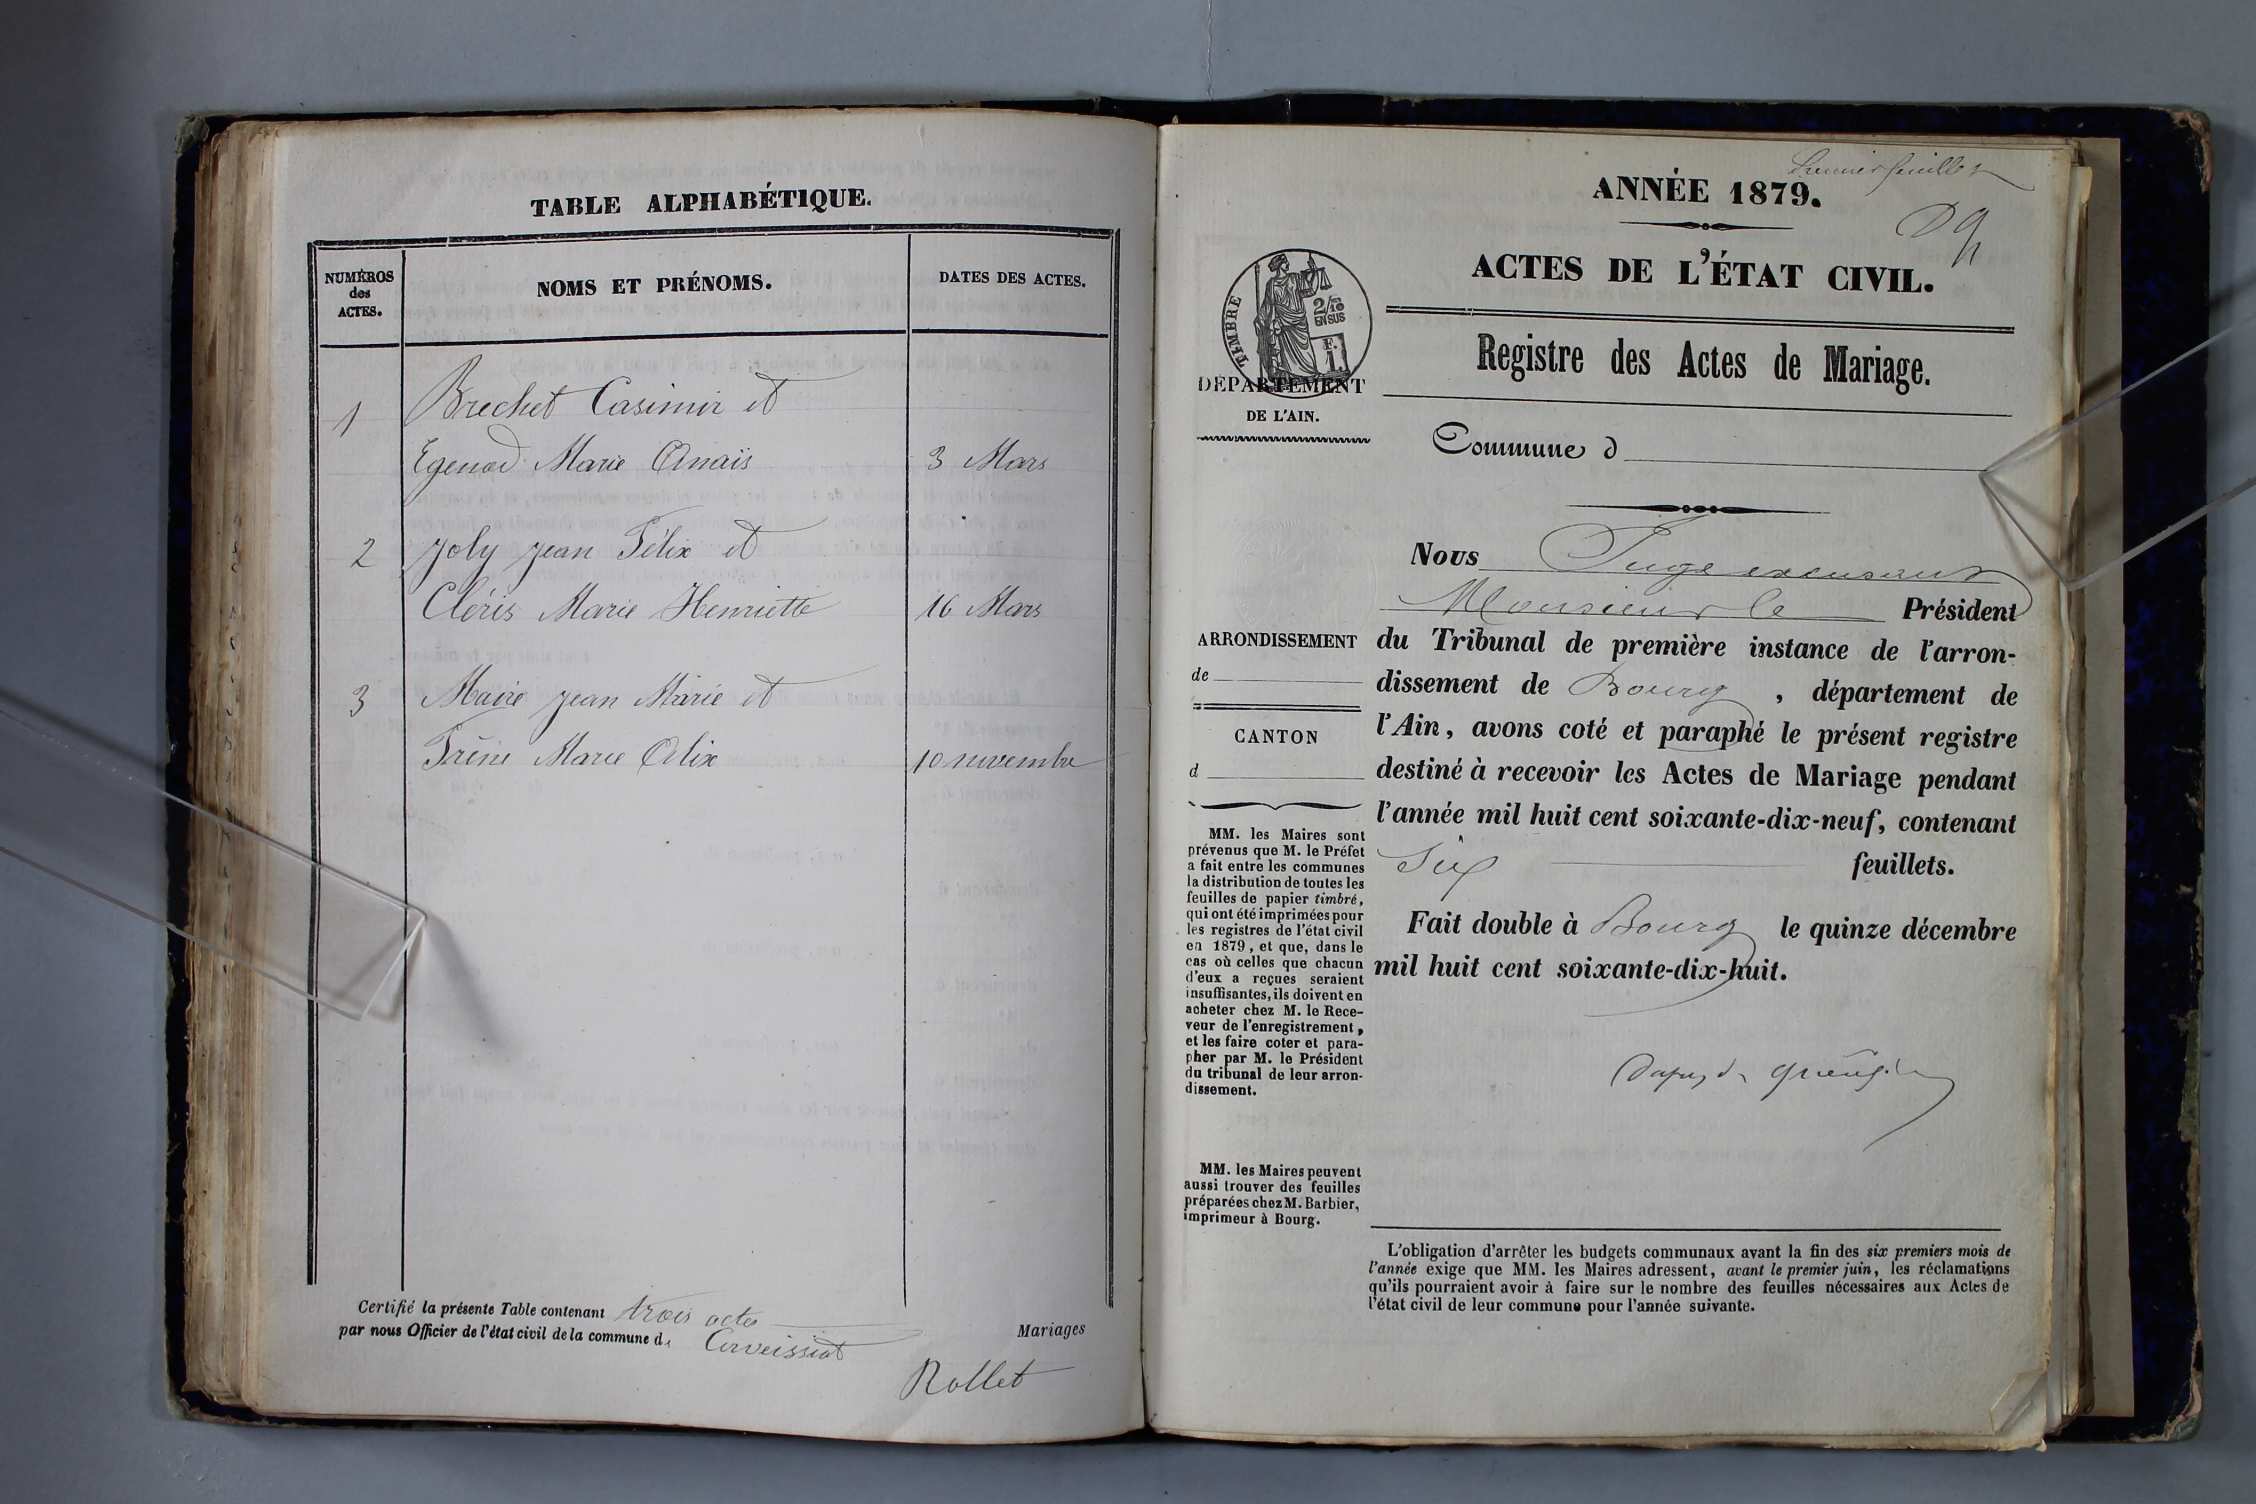 TABLE ALPHABÉTIQUE.
NUMÉROS
des
ACTES.
NOMS ET PRÉNOMS.
DATES DES ACTES.
1
Brechet Casimir et
Egenod Marie Anaïs
3 Mars
2
Joly Jean Félix et
Cléris Marie Henriette
16 Mars
3
Maire Jean Marie et
Marie Alix
10 novembre
Certifié la présente Table contenant trois actes
par nous Officier de l'état civil de la commune de Corveissiat
Mariages
Rollet
Premier feuillet
ANNÉE 1879.
ACTES DE L'ÉTAT CIVIL.
TIMBRE
2/10
EN SUS
F.
1.
DÉPARTEMENT
DE L'AIN.
Registre des Actes de Mariage.
Commune d
Nous Juge excusant
Monsieur le Président
du Tribunal de première instance de l'arron-
dissement de Bourg, département de
l'Ain, avons coté et paraphé le présent registre
destiné à recevoir les Actes de Mariage pendant
l'année mil huit cent soixante-dix-neuf, contenant
Six feuillets.
Fait double à Bourg le quinze décembre
mil huit cent soixante-dix-huit.
ARRONDISSEMENT
de
CANTON
d
MM. les Maires sont
prévenus que M. le Préfet
a fait entre les communes
la distribution de toutes les
feuilles de papier timbré,
qui ont été imprimées pour
les registres de l'état civil
en 1879, et que, dans le
cas où celles que chacun
d'eux a reçues seraient
insuffisantes, ils doivent en
acheter chez M. le Rece-
veur de l'enregistrement,
et les faire coter et para-
pher par M. le Président
du tribunal de leur arron-
dissement.
MM. les Maires peuvent
aussi trouver des feuilles
préparées chez M. Barbier,
imprimeur à Bourg.
L'obligation d'arrêter les budgets communaux avant la fin des six premiers mois de
l'année exige que MM. les Maires adressent, avant le premier juin, les réclamations
qu'ils pourraient avoir à faire sur le nombre des feuilles nécessaires aux Actes de
l'état civil de leur commune pour l'année suivante.